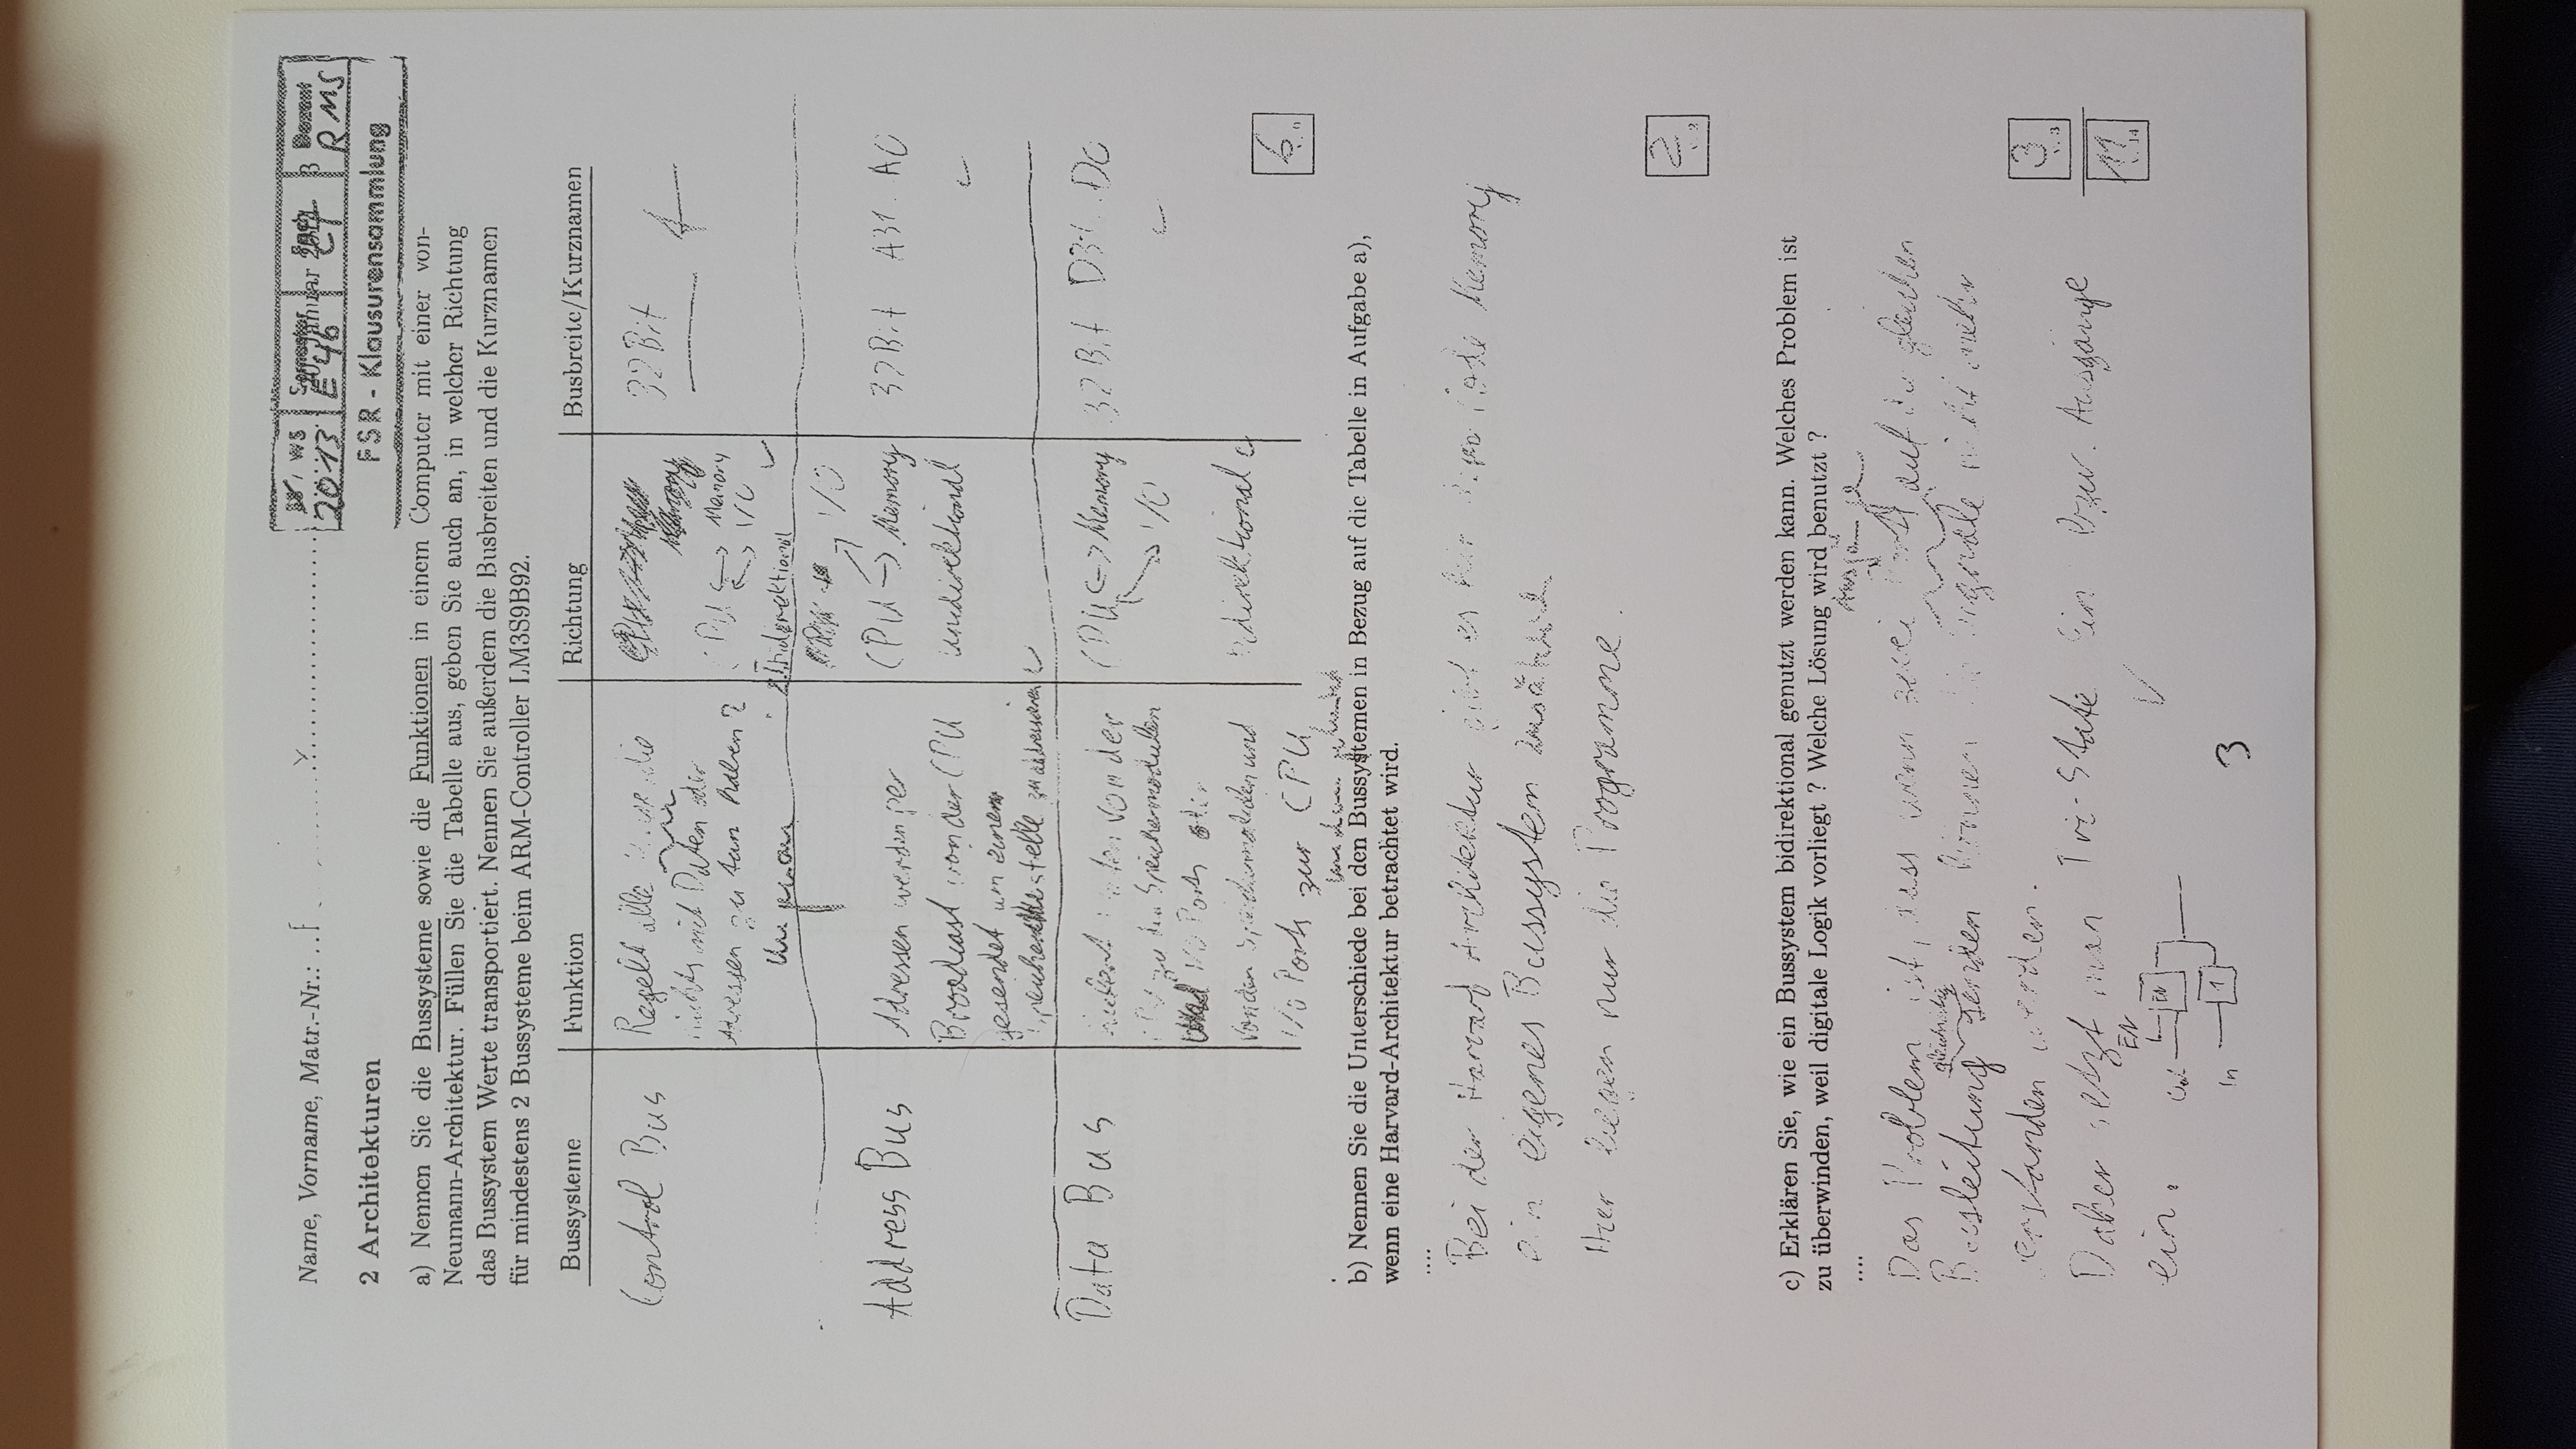 Name, Vorname, Matr.-Nr.:
SS / WS Semester Fach Dozent
2013 E46 CT RMS
Januar 3
FSR - Klausurensammlung
2 Architekturen
a) Nennen Sie die Bussysteme sowie die Funktionen in einem Computer mit einer von-
Neumann-Architektur. Füllen Sie die Tabelle aus, geben Sie auch an, in welcher Richtung
das Bussystem Werte transportiert. Nennen Sie außerdem die Busbreiten und die Kurznamen
für mindestens 2 Bussysteme beim ARM-Controller LM3S9B92.
Bussysteme Funktion Richtung Busbreite/Kurznamen
Control Bus Regelt alle die 32 Bit
nichts mit Daten oder
Adressen zu tun haben ? CPU ↔ Memory
↔ I/O
bidirektional
I/O
Address Bus Adressen werden per CPU → Memory 32 Bit A31.. A0
Broadcast von der CPU unidirektional
gesendet um einen
stelle zu addressieren
Data Bus von der CPU ↔ Memory 32 Bit D31...D0
CPU zu den Speichermodulen I/O
I/O Ports oder
von den Speichermodulen und bidirektional
I/O Ports zur CPU
6
b) Nennen Sie die Unterschiede bei den Bussystemen in Bezug auf die Tabelle in Aufgabe a),
wenn eine Harvard-Architektur betrachtet wird.
....
Bei der Harvard Architektur gibt es für Code Memory
ein eigenes Bussystem
Hier liegen nur die Programme.
2
c) Erklären Sie, wie ein Bussystem bidirektional genutzt werden kann. Welches Problem ist
zu überwinden, weil digitale Logik vorliegt ? Welche Lösung wird benutzt ?
Ausgänge
....
Das Problem ist, dass wenn zwei Ports auf der gleichen
gleichzeitig
Busleitung senden können die Signale nicht mehr
verstanden werden.
3
Daher setzt man Tri-State Ein bzw. Ausgänge
11
EN
ein. EN
Out
In 1
3